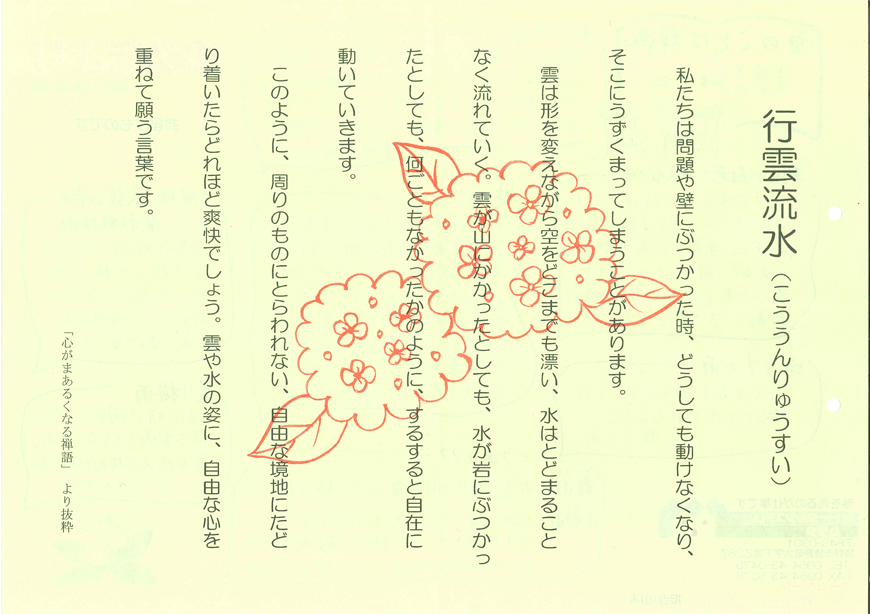 行雲流水（こううんりゅうすい）
私たちは問題や壁にぶつかった時、どうしても動けなくなり、
そこにうずくまってしまうことがあります。
雲は形を変えながら空をどこまでも漂い、水はとどまること
なく流れていく。雲が山にかかったとしても、水が岩にぶつかっ
たとしても、何ごともなかったかのように、するすると自在に
動いていきます。
このように、周りのものにとらわれない、自由な境地にたど
り着いたらどれほど爽快でしょう。雲や水の姿に、自由な心を
重ねて願う言葉です。
「心がまあるくなる禅語」より抜粋